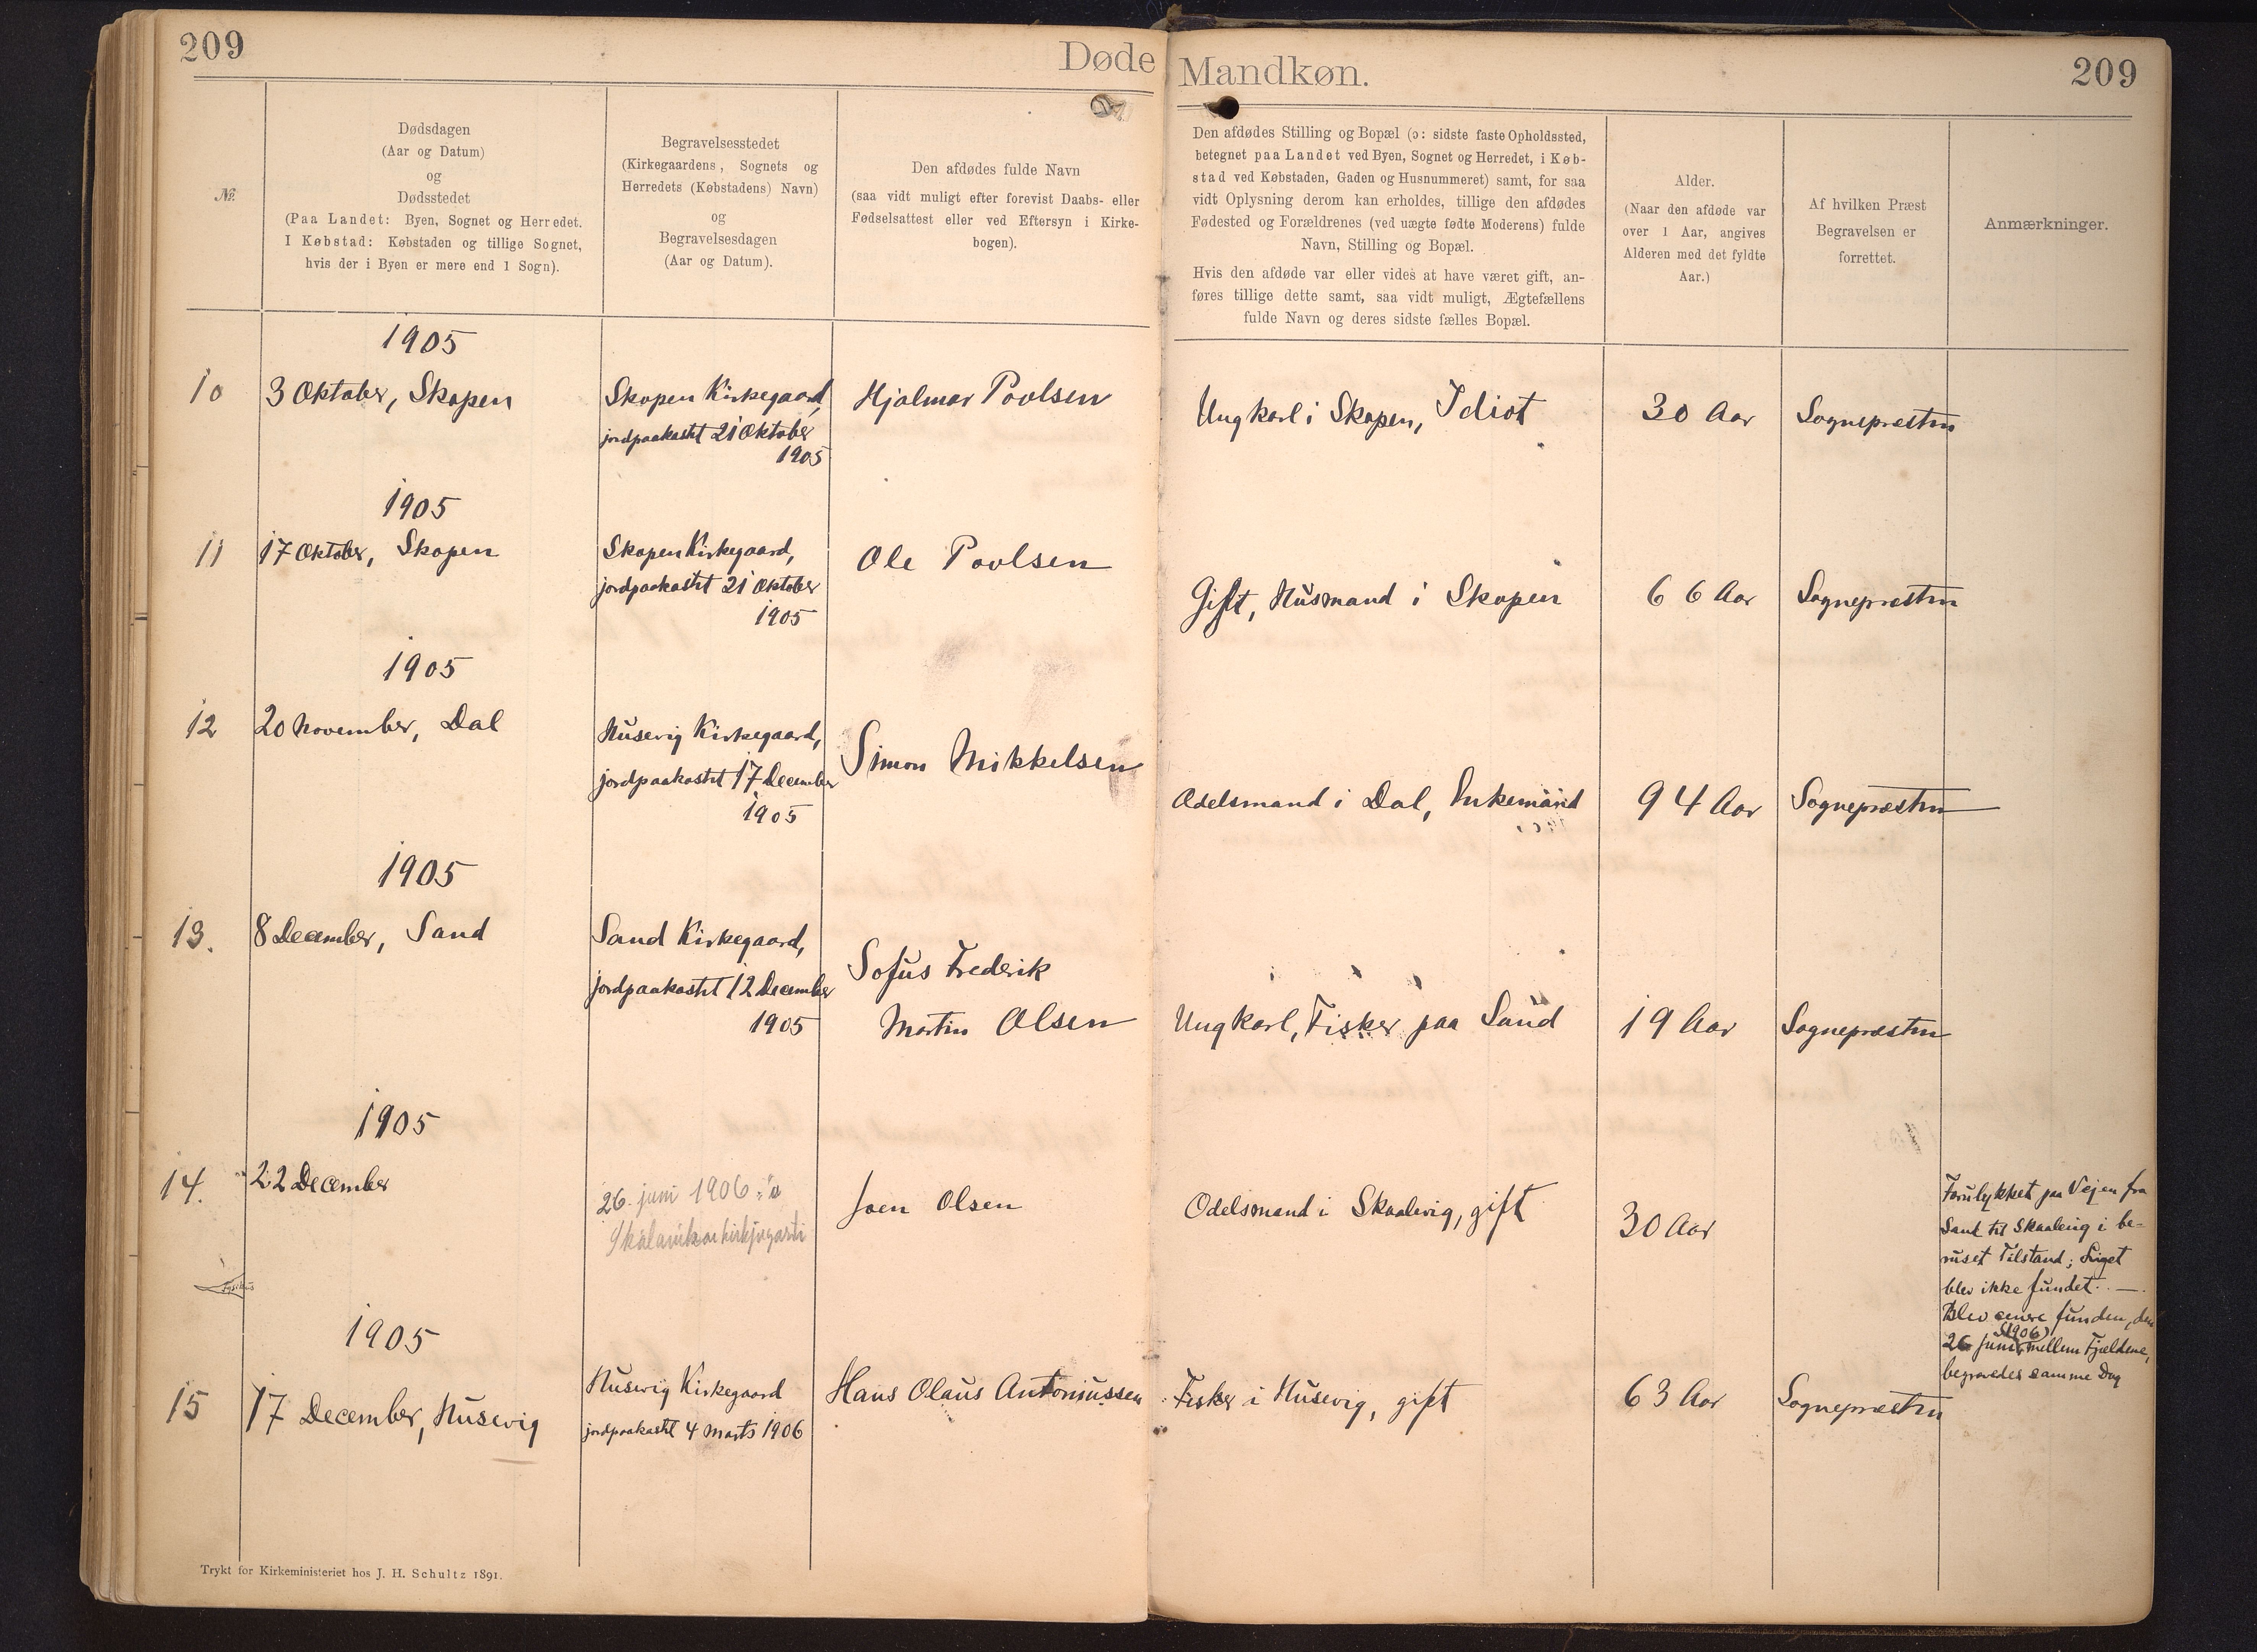 209
Døde
Mandkøn.
209
№.
Dødsdagen
(Aar og Datum)
og
Dødsstedet
(Paa Landet: Byen, Sognet og Herredet.
I Købstad: Købstaden og tillige Sognet,
hvis der i Byen er mere end 1 Sogn).
Begravelsesstedet
(Kirkegaardens, Sognets og
Herredets (Købstadens) Navn)
og
Begravelsesdagen
(Aar og Datum).
Den afdødes fulde Navn
(saa vidt muligt efter forevist Daabs- eller
Fødselsattest eller ved Eftersyn i Kirke-
bogen).
Den afdødes Stilling og Bopæl (ɔ: sidste faste Opholdssted,
betegnet paa Landet ved Byen, Sognet og Herredet, i Køb-
stad ved Købstaden, Gaden og Husnummeret) samt, for saa
vidt Oplysning derom kan erholdes, tillige den afdødes
Fødested og Forældrenes (ved uægte fødte Moderens) fulde
Navn, Stilling og Bopæl.
Hvis den afdøde var eller vides at have været gift, an-
føres tillige dette samt, saa vidt muligt, Ægtefællens
fulde Navn og deres sidste fælles Bopæl.
Alder.
(Naar den afdøde var
over 1 Aar, angives
Alderen med det fyldte
Aar.)
Af hvilken Præst
Begravelsen er
forrettet.
Anmærkninger.
1905
10
3 Oktober, Skopen
Skopen Kirkegaard,
jordpaakastet 21 Oktober
1905
Hjalmar Poulsen
Ungkarl i Skopen, Idiot
30 Aar
Sognepræsten
1905
11
17 Oktober, Skopen
Skopen Kirkegaard,
jordpaakastet 21 Oktober
1905
Ole Poulsen
Gift, Husmand i Skopen
66 Aar
Sognepræsten
1905
12
20 November, Dal
Husevig Kirkegaard,
jordpaakastet 17 December
1905
Simon Mikkelsen
Odelsmand i Dal, Enkemand
94 Aar
Sognepræsten
1905
13.
8 December, Sand
Sand Kirkegaard,
jordpaakastet 12 December
1905
Sofus Frederik
Martin Olsen
Ungkarl, Fisker paa Sand
19 Aar
Sognepræsten
1905
14.
22 December
26. juni 1906
Skálavíkar kirkjugarði
Joen Olsen
Odelsmand i Skaalevig, gift
30 Aar
Forulykket paa Vejen fra
Sand til Skaalevig i be-
ruset Tilstand; Liget
blev ikke fundet. —
Blev funden, den
26 Juni (1906) mellem Fjældene,
begravedes samme Dag
1905
15
17 December, Husevig
Husevig Kirkegaard
jordpaakastet 4 Marts 1906
Hans Olaus Antoniussen
Fisker i Husevig, gift
63 Aar
Sognepræsten
Trykt for Kirkeministeriet hos J. H. Schultz 1891.